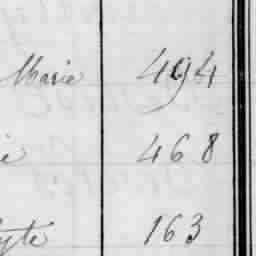 Marie 494
e 468
yte 163